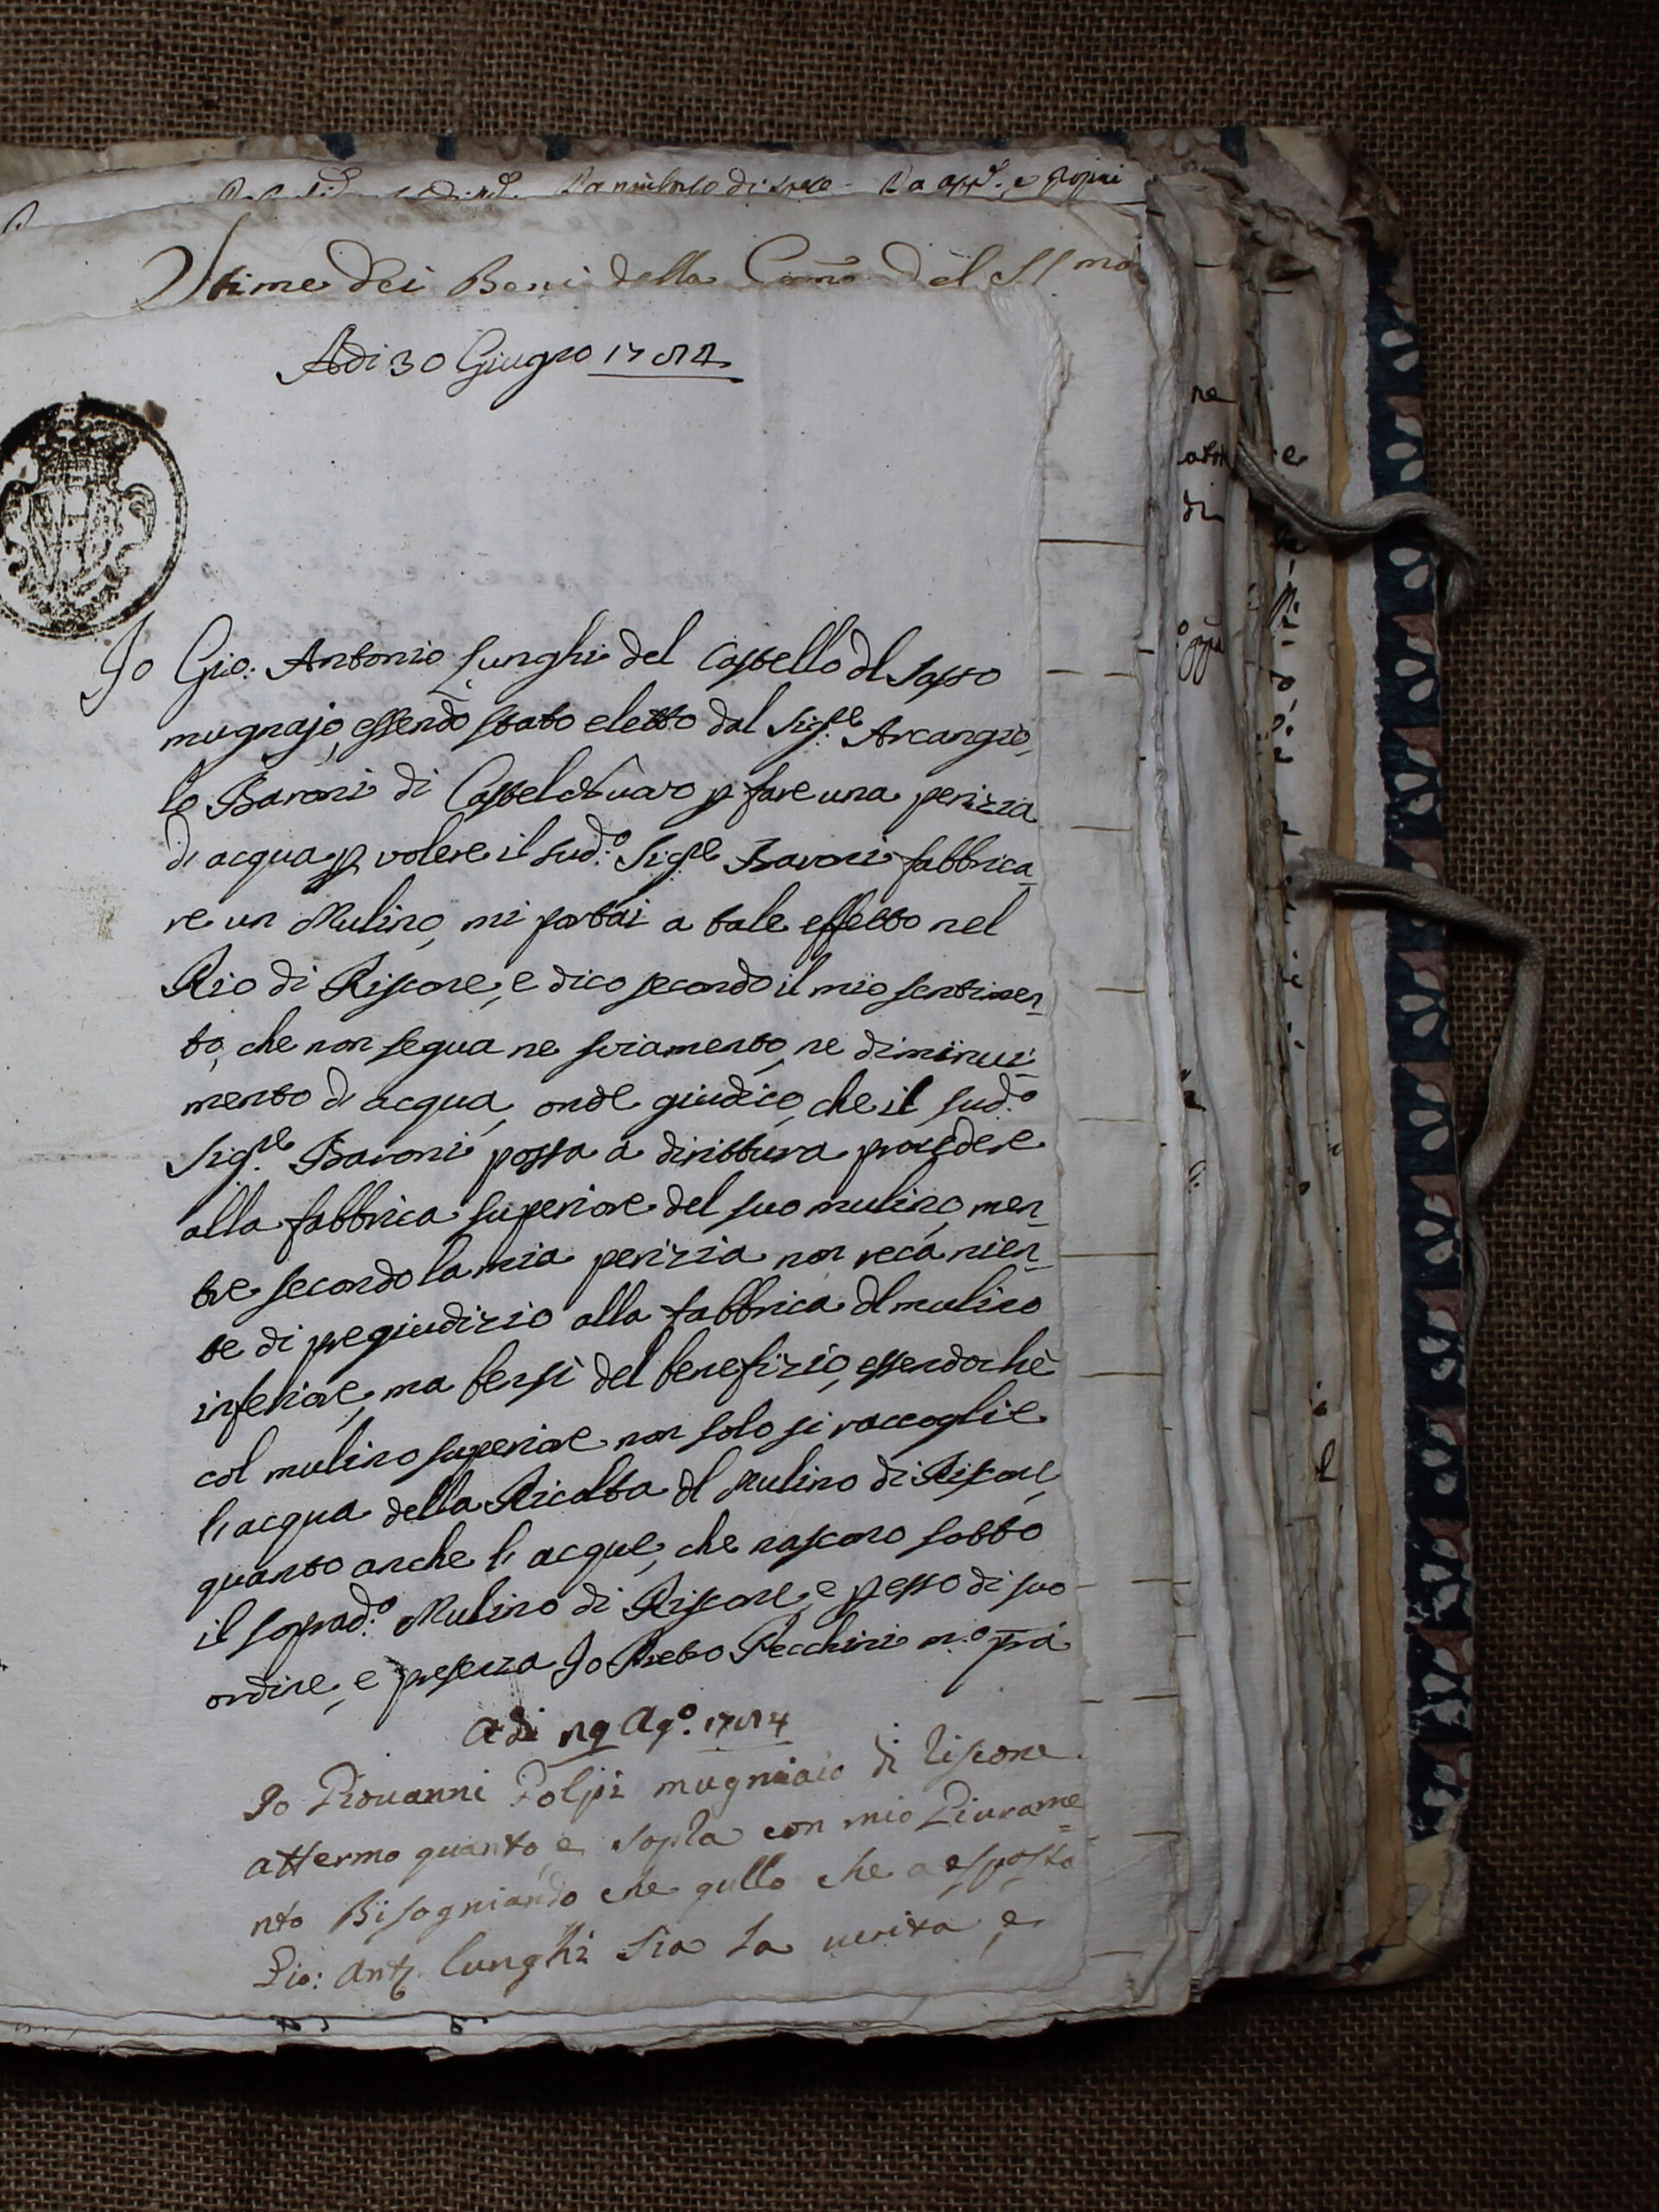 Stime dei Beni della Com̃a del SS mo
Adi 30 Giugno 1784
Io Gio: Antonio Lunghi del Castello dl Sasso
mugnajo, essendo stato eletto dal Sig.re Arcangio,
lo Baroni di Castel di
fare una perizia
di acqua p volere il sud.o Sig.re Baroni fabbrica_
re un Mulino, mi portai a tale effetto nel
Rio di Riscone, e dico secondo il mio sentimen_
to, che non segua ne sviamento, ne diminui_
mento di acqua, onde giudico, che il sud.o
Sig.re Baroni possa a dirittura procedere
alla fabbrica superiore del suo mulino, men_
tre secondo la mia perizia non reca nien_
te di pregiudizio alla fabbrica dl mulino
inferiore, ma bensì del benefizio, essendochè
col mulino superiore non solo si raccoglie
l'acqua della Ricolta dl Mulino di Riscone,
quanto anche l'acque, che nascono sotto
il soprad.o Mulino di Riscone, e p esso di suo
ordine, e presenza Io Pecchini m.o ppa
Adi Ag.o 1784
Io Giouanni Folpi mugniaio di Riscone
attermo quanto, e sopla con mio Giurame=
nto Bisogniando che qullo che a esposto
Gio: Ant. Lunghi Sia la uerita e